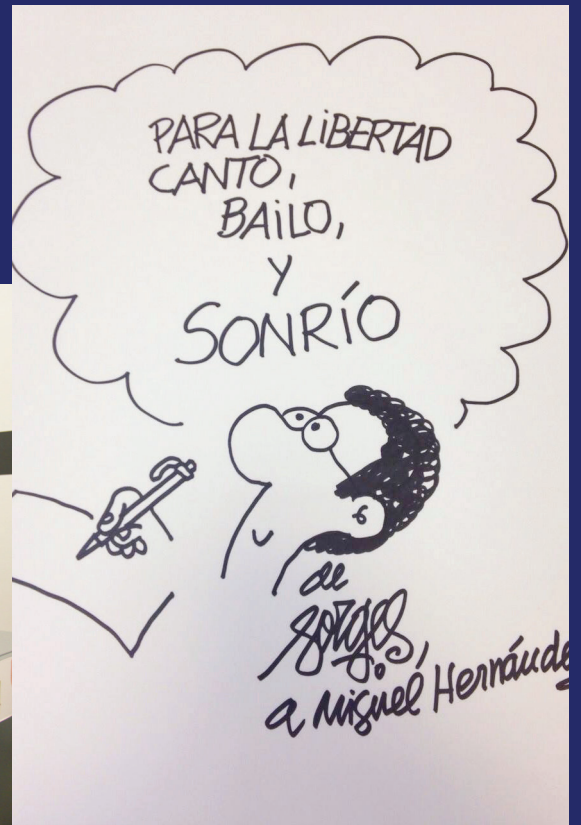 PARA LA LiBERTAD
CANTO,
BAiLO,
Y
SONRÍO
de
Forges,
a Miguel Hernánde